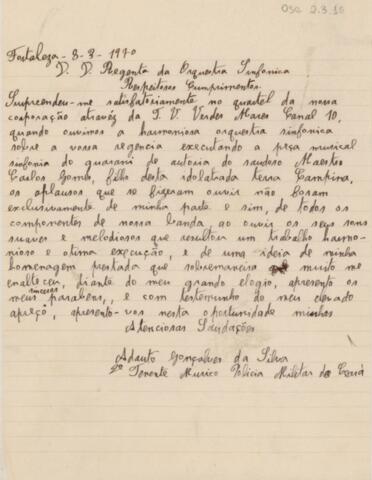 OSC 2.3.10
Fortaleza - 8-3-1970
D. D. Regente da Orquestra Sinfonica
Respeitosos Cumprimentos.
Surpreendeu-me satisfatoriamente no quartel da nossa
corporação através da T. V. Verdes Mares Canal 10,
quando ouvimos a harmoniosa orquestra sinfonica
sobre a vossa regencia executando a peça musical
sinfonia do guarani de autoria do saudoso Maestro
Carlos Gomes, filho desta idolatrada terra Campina,
os aplausos que se fizeram ouvir não foram
exclusivamente de minha parte e sim, de todos os
componentes de nossa banda, ao ouvir os seus sons
suaves e melodiosos que resultou um trabalho harmo-
nioso e otima execução, e de uma ideia de minha
homenagem prestada que sobremaneira muito me
enalteceu, diante do meu grande elogio, apresento os
meus sinceros parabens, e com testemunho do meu elevado
apreço, apresento-vos nesta oportunidade minhas
Atenciosas Saudações
Adauto Gonçalves da Silva
2º Tenente Musico Policia Militar do Ceará